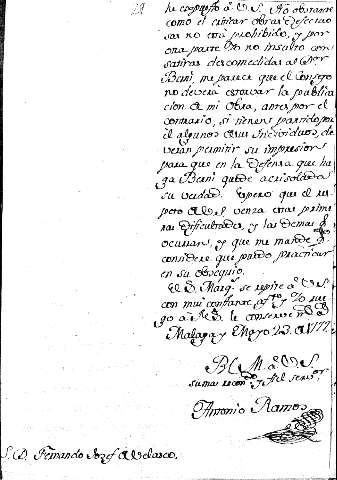 he expuesto â V.S. No obstante
como el criticar obras defectuo
sas no está prohibido, y por
otra parte Yo no insulto con
satiras descomedidas al Sor
Beni, me parece que el Consejo
no deverá estorvar la publica
cion de mi Obra, antes por el
contrario, si tienen partido por
el algunos de sus Individuos, de
verán permitir su impresion
para que en la defensa que ha
ga Beni quede acrisolada
su verdad. Espero que el res
peto de V.S. venza estas prime
ras dificultades, y las demas q.
ocurran, y que me mande q.to
considere que puedo practicar
en su obsequio.
El S. Marq.s se repite â V.S.
con mui constante af.to y Yo rue
go â N.S. le conserve m.s a.s
Malaga y Mayo 23 de 177
B.L.M. de V.S.
su mas recon.do y fiel servor
Antonio Ramos
S.D. Fernando Josef de Velasco.